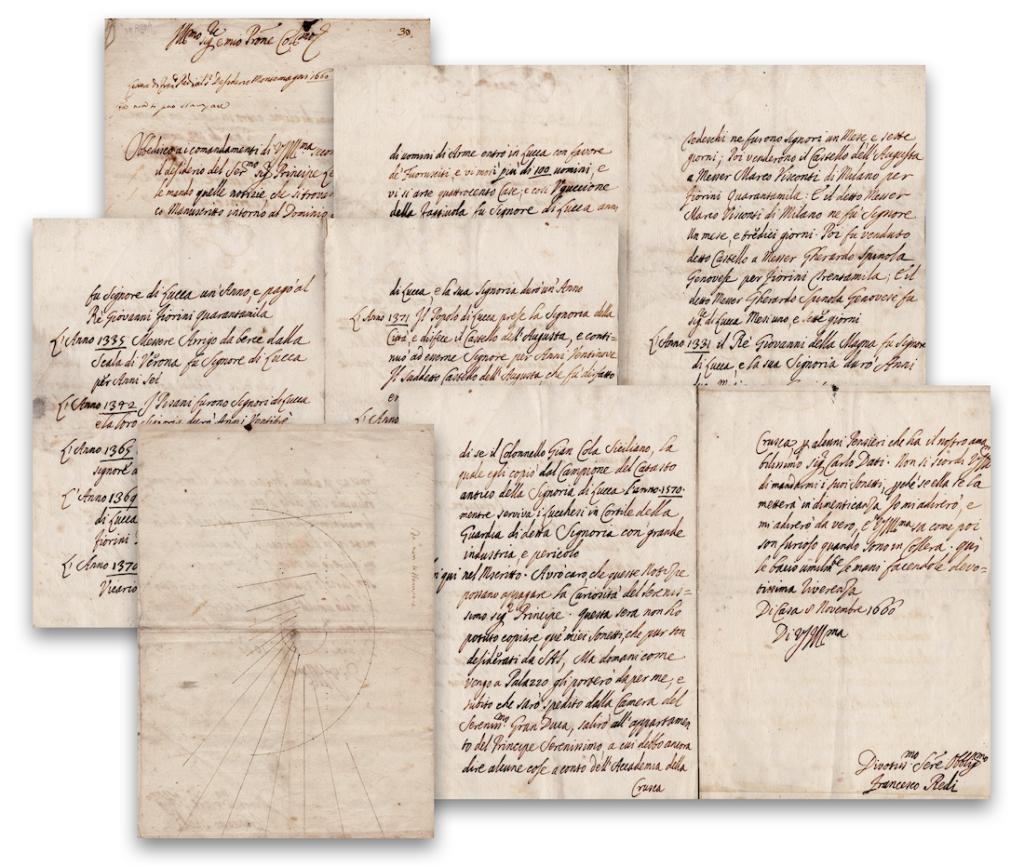 Ill.mo Sig.re e mio Prone Col.mo
30
Obbedisco ai comandamenti di V.S. Ill.ma
il desiderio del Ser.mo Sig. Principe
le mando quelle notizie che si trova
co Manuscritto intorno al Dominio
di uomini di Arme entrò in Lucca con favore
de' Fuorusciti, e vi morì più di 100 uomini, e
vi si arse quattrocento Case, e così Uguccione
della Faggiuola fu Signore di Lucca ann
Tedeschi ne furono Signori un Mese, e sette
giorni; Poi venderono il Castello dell'Augusta
a Messer Marco Visconti di Milano per
fiorini Quarantamila; E il detto Messer
Marco Visconti di Milano ne fu Signore
Un mese, e tredici giorni. Poi fu venduto
detto Castello a Messer Gherardo Spinola
Genovese per fiorini Trentamila; E il
detto Messer Gherardo Spinola Genovese fu
sig.re di Lucca Mesi uno, e sette giorni
L'Anno 1331 il Re Giovanni della Magna fu Signore
di Lucca e la sua Signoria durò Anni
fu Signore di Lucca un'Anno, e pagò al
Re Giovanni fiorini quarantamila
L'Anno 1335 Messere Arrigo da
Scala di Verona fu Signore di Lucca
per Anni Sei
L'Anno 1342 I Pisani furono Signori di Lucca
e la loro Signoria durò Anni
L'Anno 1365
signore a
L'Anno 1369
di Lucca
fiorini
L'Anno 1370
Vicario
di Lucca, e la sua Signoria durò un'Anno
L'Anno 1371 Il Popolo di Lucca prese la Signoria della
Città, e disfece il Castello dell'Augusta, e conti-
nuò ad esserne Signore per Anni Ventinove
Il suddetto Castello dell'Augusta che fu disfatto
er
L'Anno
di se il Colonnello Gian Cola Siciliano, la
quale egli copiò dal Campione del Catasto
antico della Signoria di Lucca l'anno 1570
mentre serviva i Lucchesi in Cortile della
Guardia di detta Signoria con grande
industria, e pericolo
qui nel Mscritto. Avrò caro, che queste Notizie
possano appagare la Curiosità del Serenis-
simo sig. Principe. Questa sera non ho
potuto copiare que' miei Sonetti, che pur son
desiderati da S.A.S., Ma domani come
vengo a Palazzo gli porterò da per me, e
subito che sarò spedito dalla Camera del
Sereniss.mo Gran Duca, salirò all'appartamen
to del Principe Serenissimo, a cui debbo ancora
dire alcune cose a conto dell'Accademia della
Crusca
Crusca, alcuni Pensieri che ha il nostro ama
bilissimo sig. Carlo Dati. Non si scordi V.S.
di mandarmi i suoi Sonetti, perché se ella se la
metterà in dimenticanza Io mi adirerò, e
mi adirerò da vero, e V.S. Ill.ma sa come poi
son furioso quando sono in Collera. Qui
le bacio umilm.te le mani facendole devo-
tissima riverenza
Di Casa Novembre 1660
Di V.S. Ill.ma
Divotiss.mo Ser.e Obblig.mo
Francesco Redi